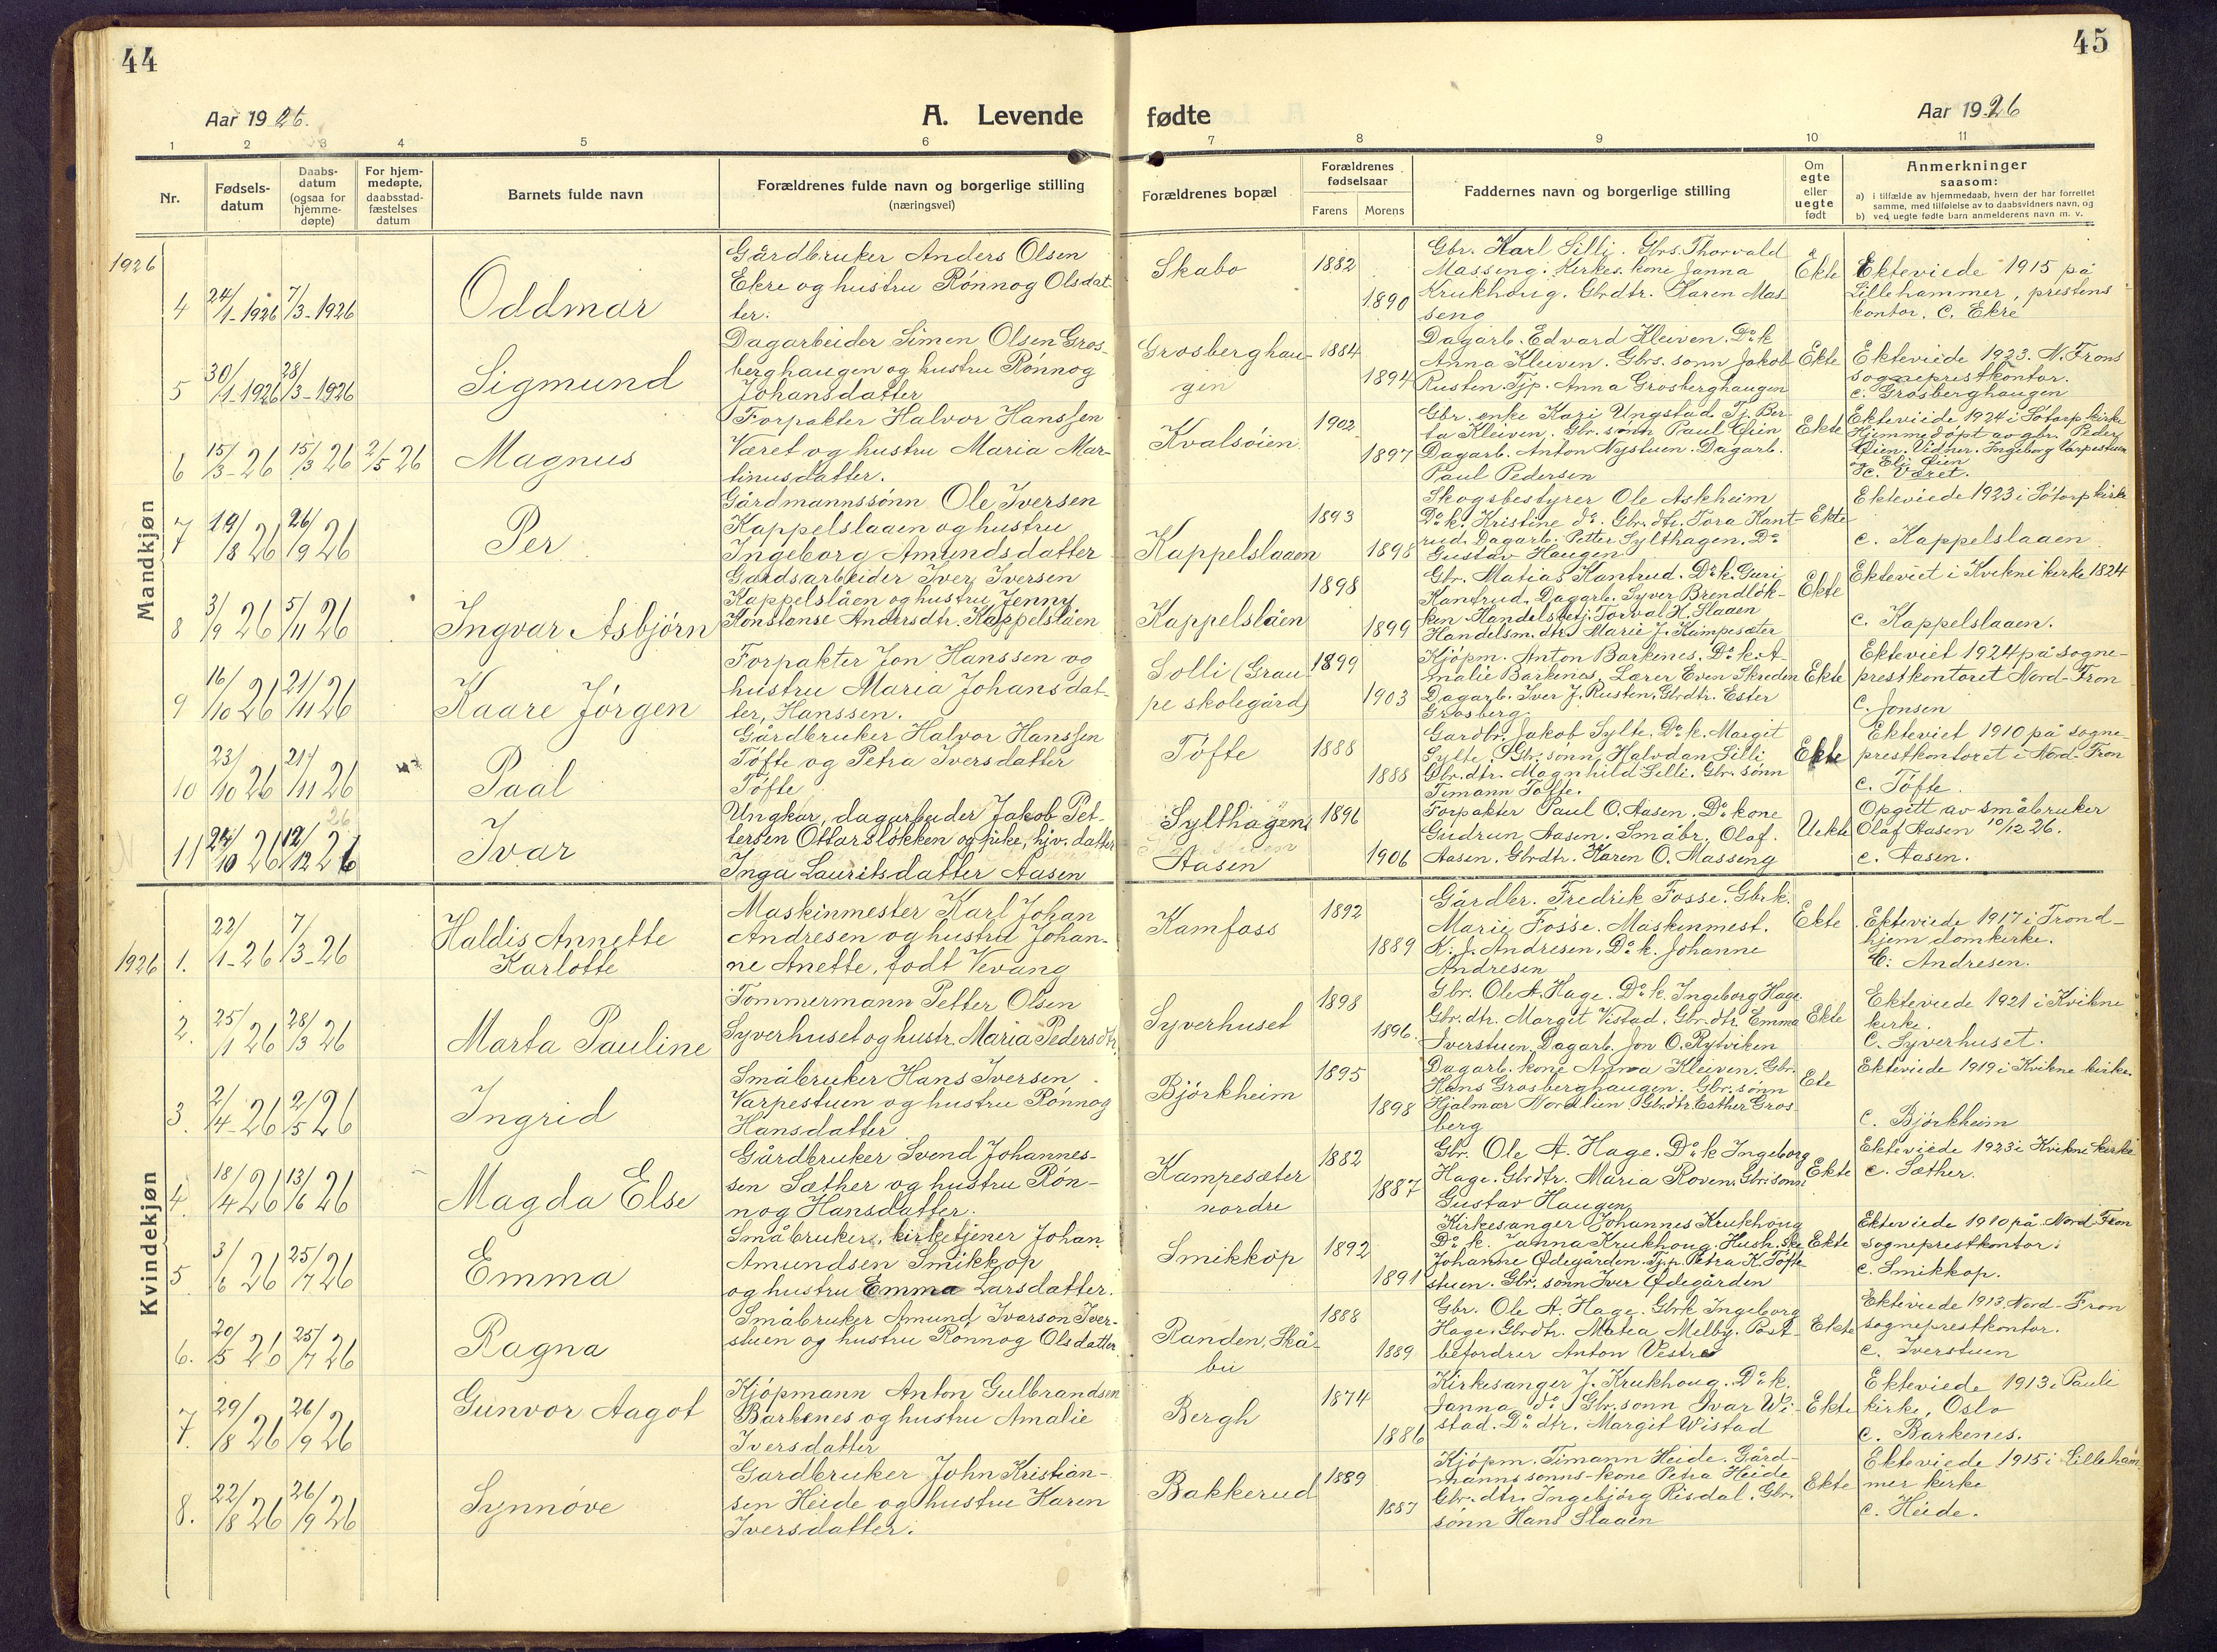 44
45
Aar 1926.
A. Levende
fødte
Aar 1926
1 2 3 4 5 6 7 8 9 10 11
Nr.
Fødsels-
datum
Daabs-
datum
(ogsaa for
hjemme-
døpte)
For hjem-
medøpte,
daabsstad-
fæstelses
datum
Barnets fulde navn
Forældrenes fulde navn og borgerlige stilling
(næringsvei)
Forældrenes bopæl
Forældrenes
fødselsaar
Farens Morens
Faddernes navn og borgerlige stilling
Om
egte
eller
uegte
født
Anmerkninger
saasom:
a) i tilfælde av hjemmedaab, hvem der har forrettet
samme, med tilføielse av to daabsvidners navn, og
b) ved uegte fødte barn anmelderens navn m. v.
Mandkjøn
1926
4 24/1-1926 7/3-1926
Oddmar
Gårdbruker Anders Olsen
Ekre og hustru Rønnog Olsdat-
ter.
Skabo
1882
1890
Gbr. Karl Lilli. Gbrs. Thorvald
Masseng. Kirkes. kone Janna
Krukhoug. Gbrdtr. Karen Mas-
seng
Ekte
Ekteviede 1915 på
Lillehammer, prestens
kontor. C. Ekre
5 30/1-1926 28/3-1926
Sigmund
Dagarbeider Simen Olsen Gros-
berghaugen og hustru Rønnog
Johansdatter
Grosberghau-
gen
1884
1894
Dagarb. Edvard Kleiven. Do k
Anna Kleiven. Gbrs. sønn Jakob
Rusten. Tjp. Anna Grosberghaugen
Ekte
Ekteviede 1923. N. Frons
sogneprestkontor.
c. Grosberghaugen
6 15/3-26 15/3 26 2/5 26
Magnus
Forpakter Halvor Hanssen
Været og hustru Maria Mar-
tinusdatter.
Kvalsøien
1902
1897
Gbr. enke Kari Ungstad. Tj. Ber-
ta Kleiven. Gbr. sønn Paul Øien
Dagarb. Anton Nystuen. Dagarb.
Paul Pedersen
Ekte
Ekteviede 1924 i Sødorp kirke
Hjemmedøpt av gbr. Peder
Øien. Vidner. Ingeborg Varpestuen
og Eli Øien
c. Været.
7 19/8 26 26/9 26
Per
Gårdmannssønn Ole Iversen
Kappelslaaen og hustru
Ingeborg Amundsdatter
Kappelslaaen
1893
1898
Skogsbestyrer Ole Askheim
Do k. Kristine do. Gbr. dtr. Tora Kant-
rud. Dagarb. Petter Sylthagen. Do
Gustav Haugen
Ekte
Ekteviede 1923 i Sødorp kirke
c. Kappelslaaen
8 3/9 26 5/11 26
Ingvar Asbjørn
Gårdsarbeider Iver Iversen
Kappelslåen og hustru Jenny
Konstanse Andersdtr. Kappelslåen
Kappelslåen
1898
1899
Gbr. Matias Kantrud. Do k. Guri
Kantrud. Dagarb. Syver Brendløk-
ken. Handelsbetj. Torval H. Slaaen
Handelsm. dtr. Marie J. Kampesæter
Ekte
Ekteviet i Kvikne kirke 1824
c. Kappelslaaen.
9 16/10 26 21/11 26
Kaare Jørgen
Forpakter Jon Hanssen og
hustru Maria Johansdat-
ter, Hanssen.
Solli (Grau-
pe skolegård)
1899
1903
Kjøpm. Anton Barkenes. Do k. A-
malie Barkenes. Lærer Even Skreden
Dagarb. Iver J. Rusten. Gbrdtr. Ester
Grosberg.
Ekte
Ekteviet 1924 på sogne-
prestkontoret Nord-Fron
C. Jonsen
10 23/10 26 21/11 26
Paal
Gårdbruker Halvor Hanssen
Tøfte og Petra Iversdatter
Tøfte
Tøfte
1888
1888
Gardbr. Jakob Sylte. Do k. Margit
Sylte. Gbr. sønn Halvdan Lilli
Gbr. dtr. Magnhild Lilli. Gbr. sønn
Timann Tofte.
Ekte
Ekteviet 1910 på sogne-
prestkontoret i Nord-Fron
c. Tøfte.
11 24/10 26 12/12 26
26
Ivar
Ungkar, dagarbeider Jakob Pet-
tersen Ottarsløkken og pike, hjv. datter
Inga Lauritsdatter Aasen
Sylthagen
Aasen
1896
1906
Forpakter Paul O. Aasen. Do kone
Gudrun Aasen. Småbr. Olaf
Aasen. Gbrdtr. Karen O. Masseng
Uekte
Opgitt av småbruker
Olaf Aasen 10/12 26.
c. Aasen.
Kvindekjøn
1926
1. 22/1-26 7/3-26
Haldis Annette
Karlotte
Maskinmester Karl Johan
Andresen og hustru Johan-
ne Anette, født Vevang
Kamfoss
1892
1889
Gårdbr. Fredrik Fosse. Gbr k.
Marie Fosse. Maskinmest.
K. J. Andresen. Do k. Johanne
Andresen
Ekte
Ekteviede 1917 i Trond-
hjem domkirke.
C. Andresen.
2. 25/1 26 28/3 26
Marta Pauline
Tømmermann Petter Olsen
Syverhuset og hustr. Maria Pedersdtr.
Syverhuset
1898
1896
Gbr. Ole A. Hage. Do k. Ingeborg Hage
Gbr. dtr. Margit Vistad. Gbr. dtr. Emma
Iverstuen. Dagarb. Jon O. Rytviken
Ekte
Ekteviede 1921 i Kvikne
kirke.
C. Syverhuset.
3. 2/4-26 2/5 26
Ingrid
Småbruker Hans Iversen
Varpestuen og hustru Rønnog
Hansdatter
Bjørkheim
1895
1898
Dagarb. kone Anna Kleiven. Gbr.
Hans Grosberghaugen. Gbr. sønn
Hjalmar Nordlien. Gbrdtr. Esther Gros-
berg
Ete
Ekteviede 1919 i Kvikne kirke.
C. Bjørkheim
4. 18/4 26 13/6 26
Magda Else
Gårdbruker Svend Johannes-
sen Sæther og hustru Røn-
nog Hansdatter.
Kampesæter
nordre
1882
1887
Gbr. Ole A. Hage. Do k Ingeborg
Hage. Gbrdtr. Maria Roven. Gbr. sønn
Gustav Haugen
Ekte
Ekteviede 1923 i Kvikne kirke
c. Sæther.
5 3/6 26 25/7 26
Emma
Småbruker, kirketjener Johan
Amundsen Smikkop
og hustru Emma Larsdatter.
Smikkop
1892
1891
Kirkesanger Johannes Krukhoug
Do k. Janna Krukhoug. Hush. ske
Johanne Ødegården. Tj.p. Petra K. Tøfte-
stuen. Gbr. sønn Iver Ødegården
Ekte
Ekteviede 1910 på Nord-Fron
sogneprestkontor.
c. Smikkop.
6. 20/5 26 25/7 26
Ragna
Småbruker Amund Ivarson Iver-
stuen og hustru Rønnog Olsdatter
Randen, Skå-
bu
1888
1889
Gbr. Ole A. Hage. Gbrk Ingeborg
Hage. Gbrdtr. Matea Melby. Post-
befordrer Anton Vestre
Ekte
Ekteviede 1913 Nord-Fron
sogneprestkontor.
c. Iverstuen
7. 29/8 26 26/9 26
Gunvor Aagot
Kjøpmann Anton Gulbrandsen
Barkenes og hustru Amalie
Iversdatter
Bergh
1874
1886
Kirkesanger J. Krukhoug. Do k.
Janna do. Gbr. sønn Ivar Wi-
stad. Do dtr. Margit Wistad
Ekte
Ekteviede 1913 i Pauli
kirke, Oslo
c. Barkenes.
8. 22/8 26 26/9 26
Synnøve
Gardbruker John Kristian-
sen Heide og hustru Karen
Iversdatter.
Bakkerud
1889
1887
Kjøpm. Timann Heide. Gård-
mannssønns-kone Petra Heide
Gbr. dtr. Ingebjørg Risdal. Gbr.
sønn Hans Slaaen
Ekte
Ekteviede 1915 i Lilleham-
mer kirke
c. Heide.